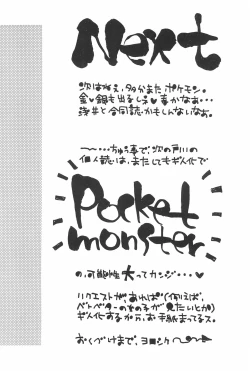 Next
次はねぇ、多分またポケモン。
金♥銀も出るしネ♥ 事かなぁ…
浅井と合同誌かもしんないなぁ。
〜…ちゅう事で、次の戸川の
個人誌は、またしてもギャ人化で
Pocket
monster
の、可能性大ってカンジ・・・♥
リクエストがあれば(例えば、
ベトベターのその子が見たいとか)
ギ人化するから、お手紙まってるス。
おくづけまで、ヨロシク